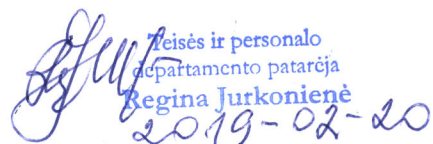 Teisės ir personalo
departamento patarėja
Regina Jurkonienė
2019-02-20